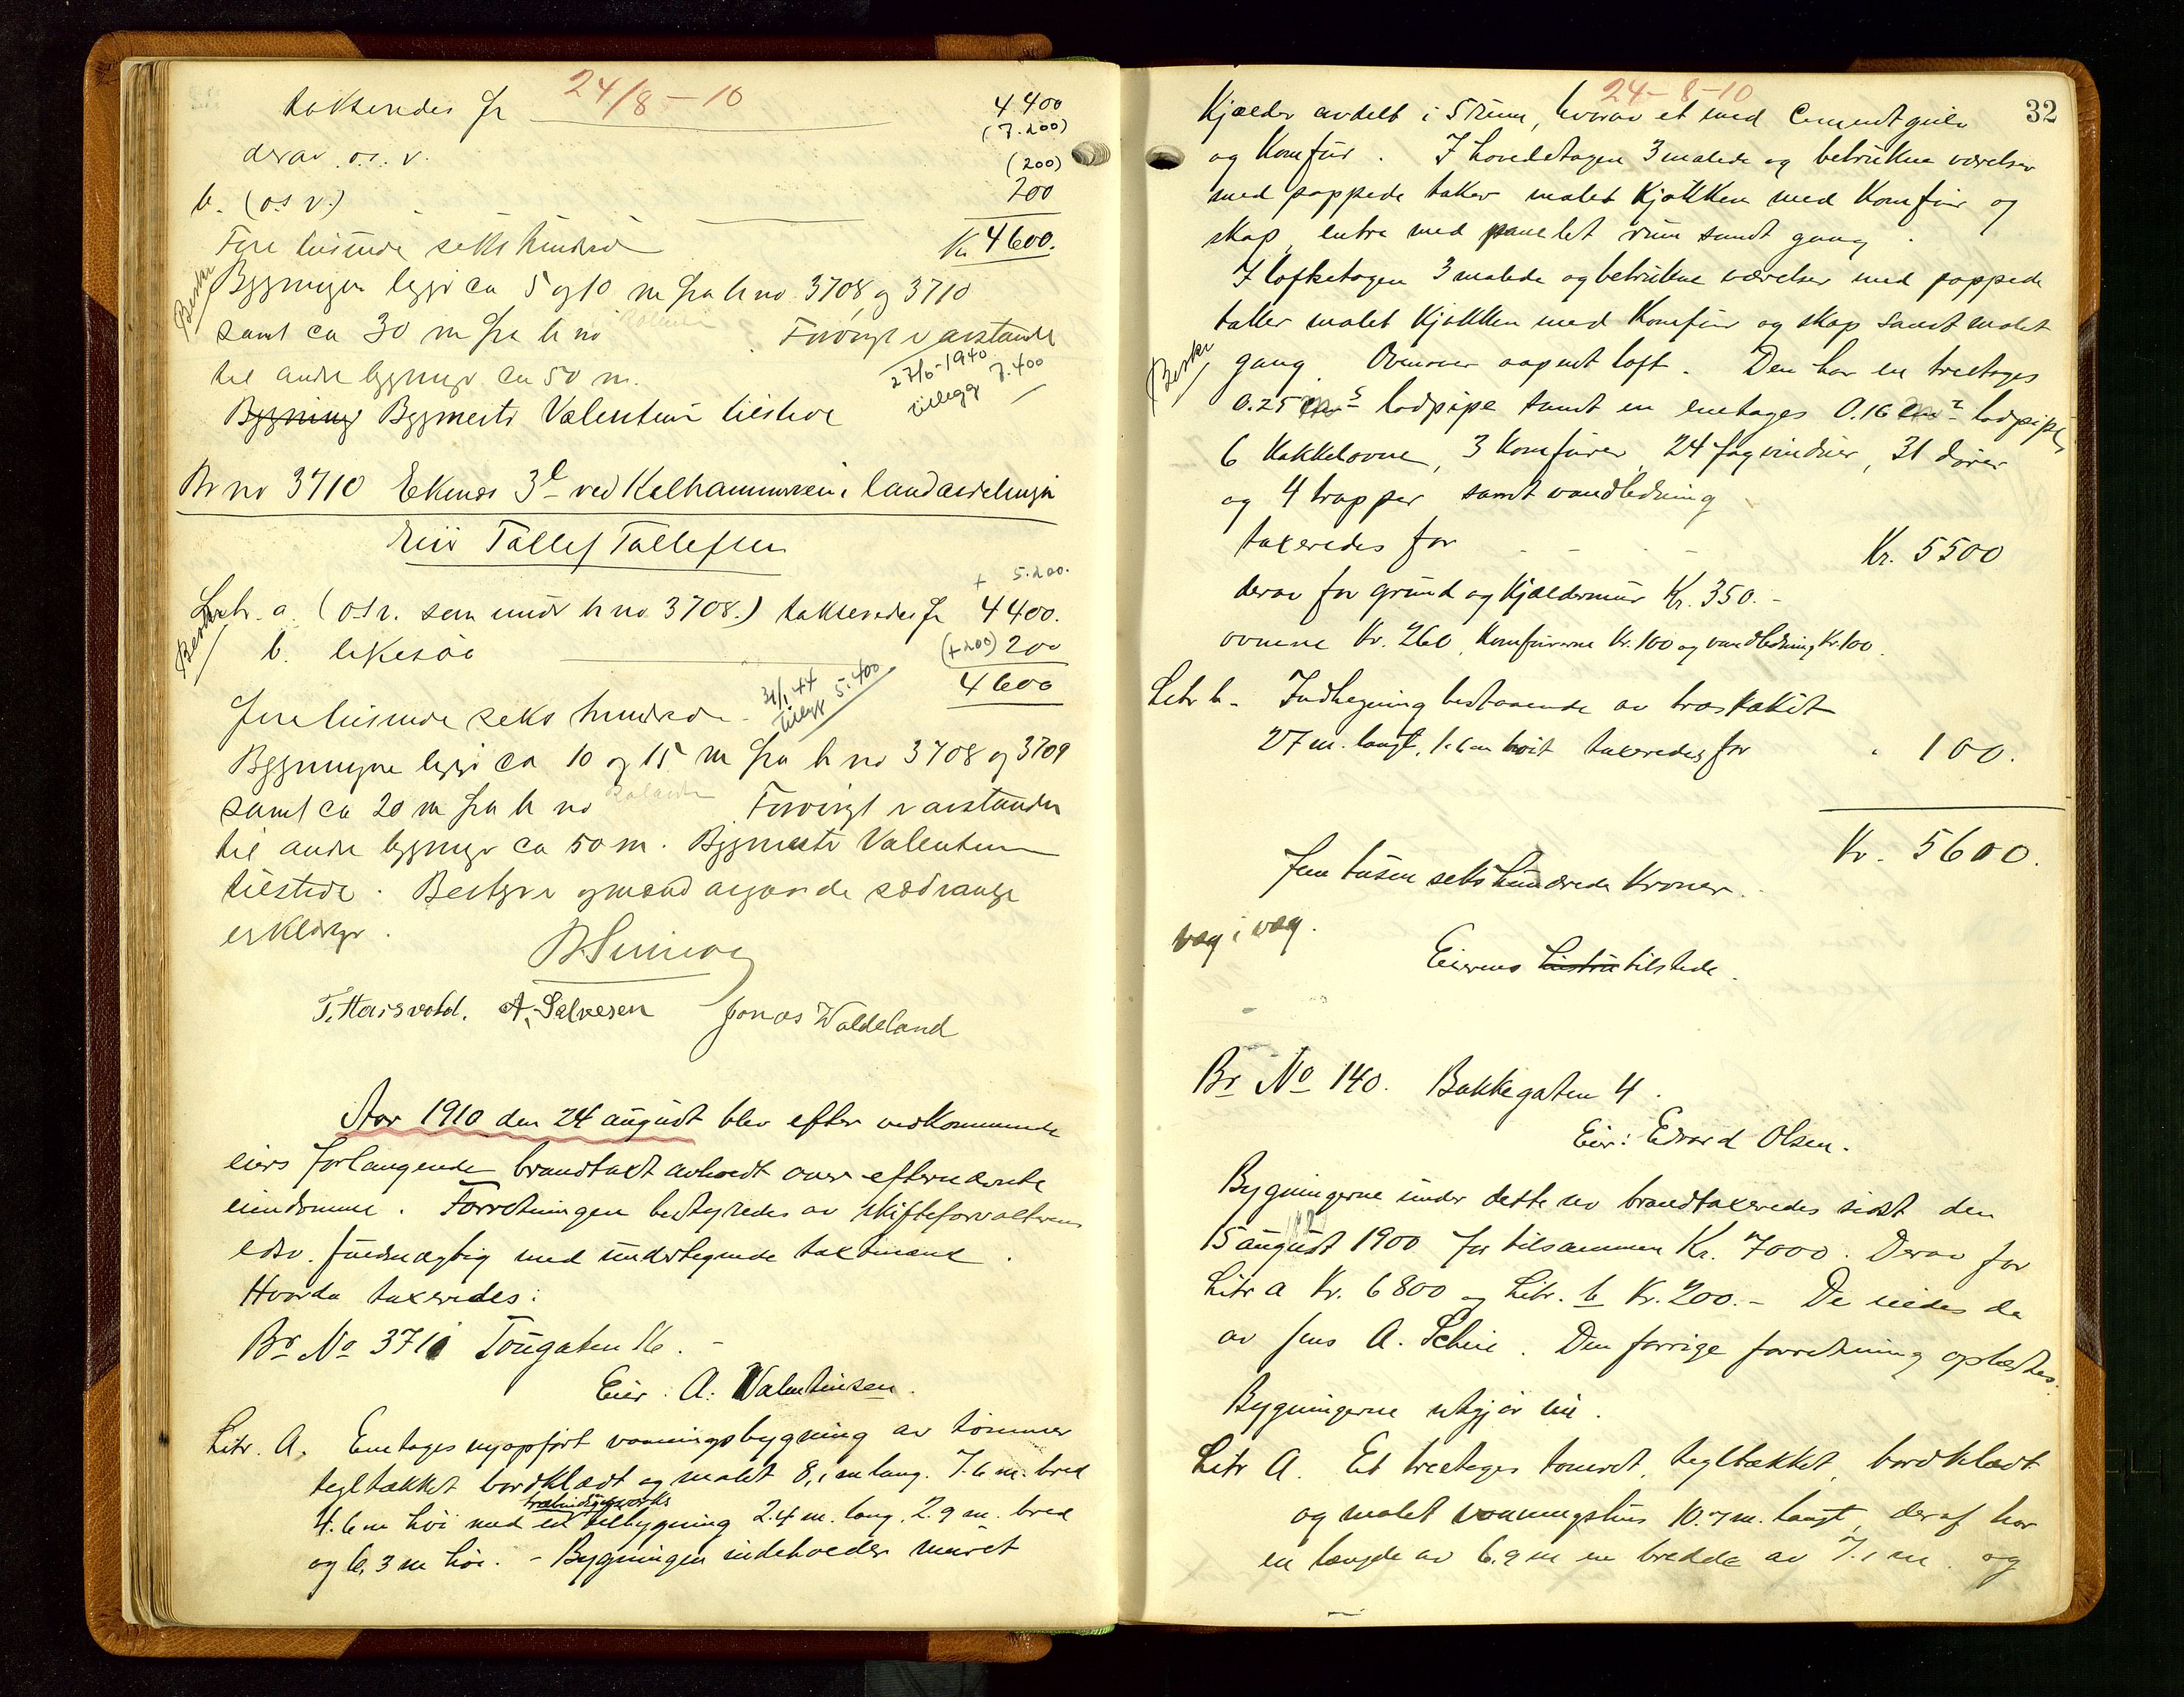 24/8-10
taksendes fr 4400
(7.200)
derav o.s.v. (200)
b. (o s v.) 200
Fire tusinde seks hundrede Kr 4600.
Beskr
Bygningen ligger ca 5 og 10 m fra br no 3708 og 3710
samt ca 30 m fra br no Forøvrigt er avstande
til andre bygninger ca 50 m.
27/6-1940
tillegg 7.400
Bygning Bygmester Valentinsen tilstede
Br no 3710 Ekenes 3d ved Kalhammerveien i landavdelingen
Eier Tollef Tollefsen
+ 5.200.
Litr. a. (o s v. som under br no 3708.) takseredes fr 4400.
Beskr
b. likesaa (+200) 200
4600
31/1 44
tillegg 5.400
fire tusinde seks hundrede
Bygningene ligger ca 10 og 15 m fra br no 3708 og 3709
samt ca 20 m fra br no Forøvrigt er avstanden
til andre bygninger ca 50 m. Bygmester Valentinsen
tilstede. Bestyrer og mænd avgav de sedvanlige
erklæringer.
T. Hausvold. A. Salvesen Jonas Waldeland
Aar 1910 den 24 august blev efter vedkommende
eiers forlangende brandtaxt avholdt over efternævnte
eiendomme. Forretningen bestyredes av skifteforvalterens
edsv. fuldmægtig med undertegnede taxtmænd.
Hvorda taxeredes:
Br No 3711 Tougaten 16.
Eier: A. Valentinsen.
Litr. A. Enetages nyopført vaaningsbygning av tømmer
tegltækket bordklædt og malet 8,1 m lang. 7.6 m. bred
4.6 m høi med en træbindingsverks tilbygning 2.4 m. lang, 2.9 m. bred
og 6,3 m høi. - Bygningen indeholder muret
24-8-10
32
Kjælder avdelt i 5 rum, hvorav et med Cementgulv
og Komfur. I hovedetagen 3 malede og betrukne værelser
med pappede taker malet Kjøkken med Komfur og
skap, entre med panelet rum samt gang.
I loftetagen 3 malede og betrukne værelser med pappede
taker malet Kjøkken med Komfur og skap samt malet
Beskr
gang. Ovenover aapent loft. Den har en treetages
0.25 m2 lodpipe samt en enetages 0.16 m2 lodpipe
6 Kakkelovne, 3 Komfurer, 24 fag vinduer, 31 dører
og 4 trapper samt vandledning
taxeredes for Kr. 5500
derav for grund og Kjældermur Kr. 350.-
ovnene Kr. 260, Komfurerne Kr. 100 og vandledning Kr. 100.
Litr b. Indhegning bestaaende av træstakit
27 m. langt, 1.6 m høit taxeredes for " 100.
Kr. 5600.
Fem tusen seks hundrede Kroner.
væg i væg.
Eierens hustru tilstede.
Br No 140. Bakkegaten 4.
Eier: Edvard Olsen.
Bygningerne under dette no brandtaxeredes sidst den
15 august 1900 for tilsammen Kr. 7000. Derav for
Litr a Kr. 6800 og Litr. b Kr. 200.- De eiedes da
av Jens A. Scheie. Den forrige forretning oplæstes.
Bygningerne utgjør nu.
Litr A. Et treetages tømret, tegltækket, bordklædt
og malet vaaningshus 10.7 m. langt, deraf har
en længde av 6.9 m en bredde av 7.1 m. og